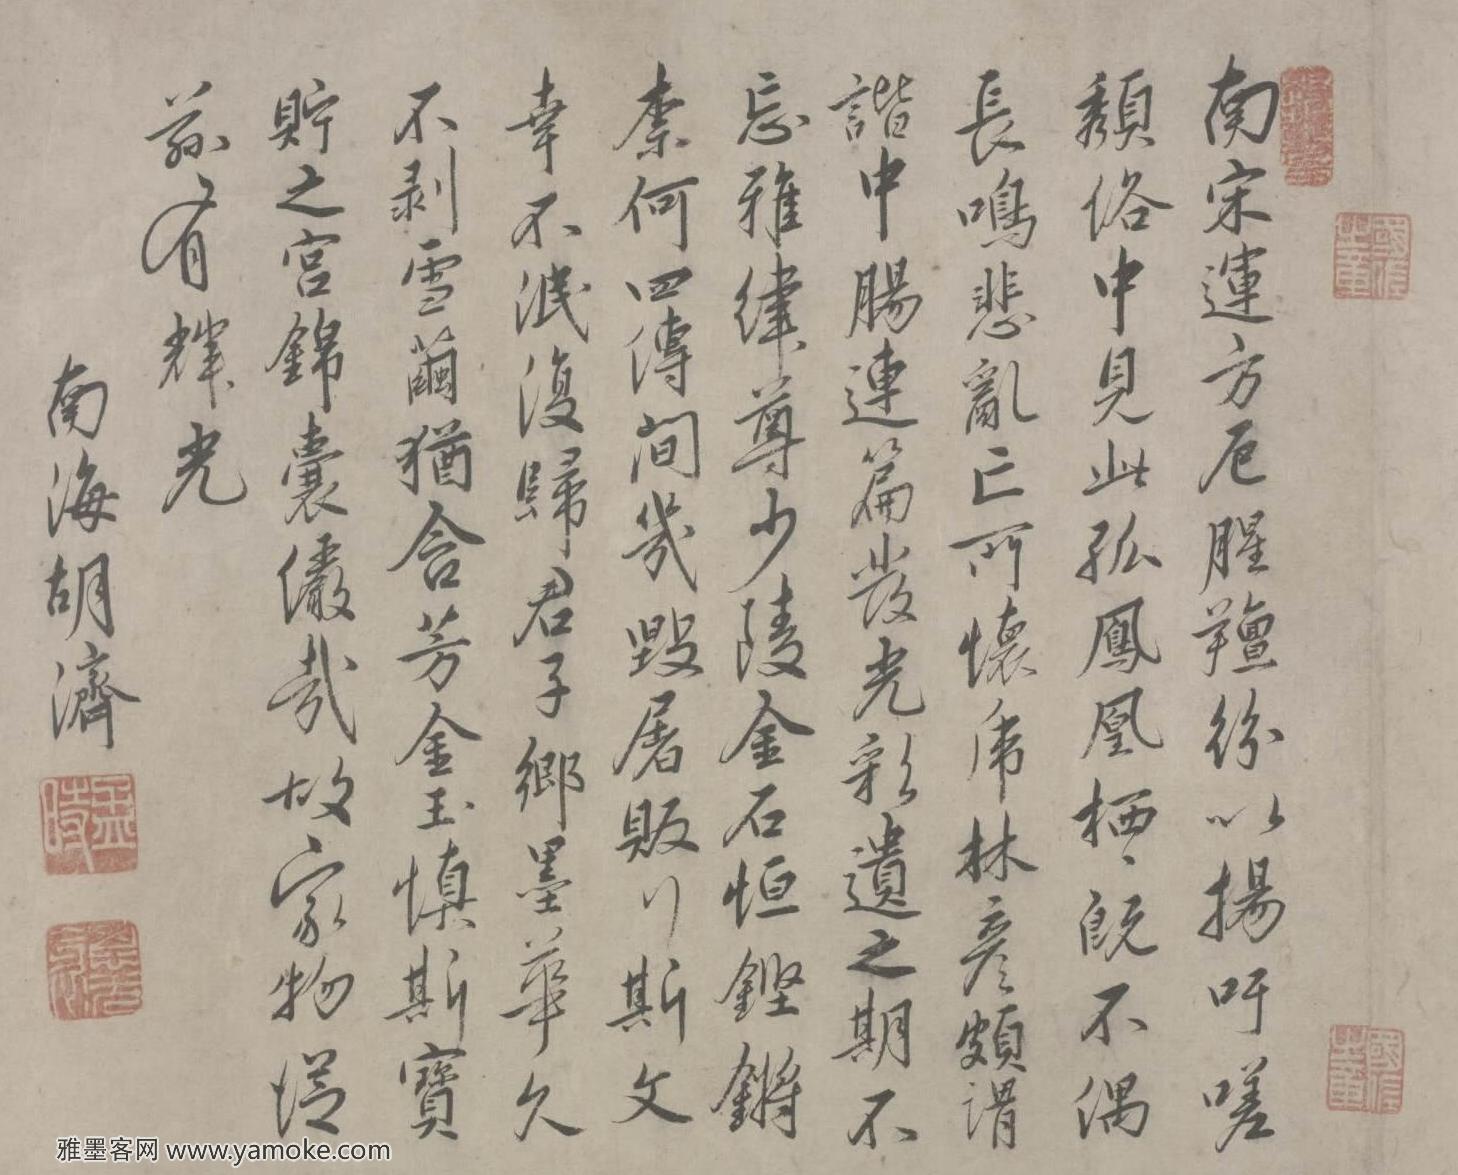 南宋運方厄腥羶紛以揚吁嗟
頹俗中見此孤鳳凰栖栖既不偶
長鳴悲亂亡所懷虎林彥頗謂
諧中腸連篇發光彩遺之期不
忘雅律尊少陵金石恒鏗鏘
柰何四傳間幾毀屠販行斯文
幸不泯復歸君子鄉墨華久
不剥雪繭猶含芳金玉慎斯寶
貯之宮錦囊儼哉故家物
孫有輝光
南海胡濟
雅墨客网 www.yamoke.com